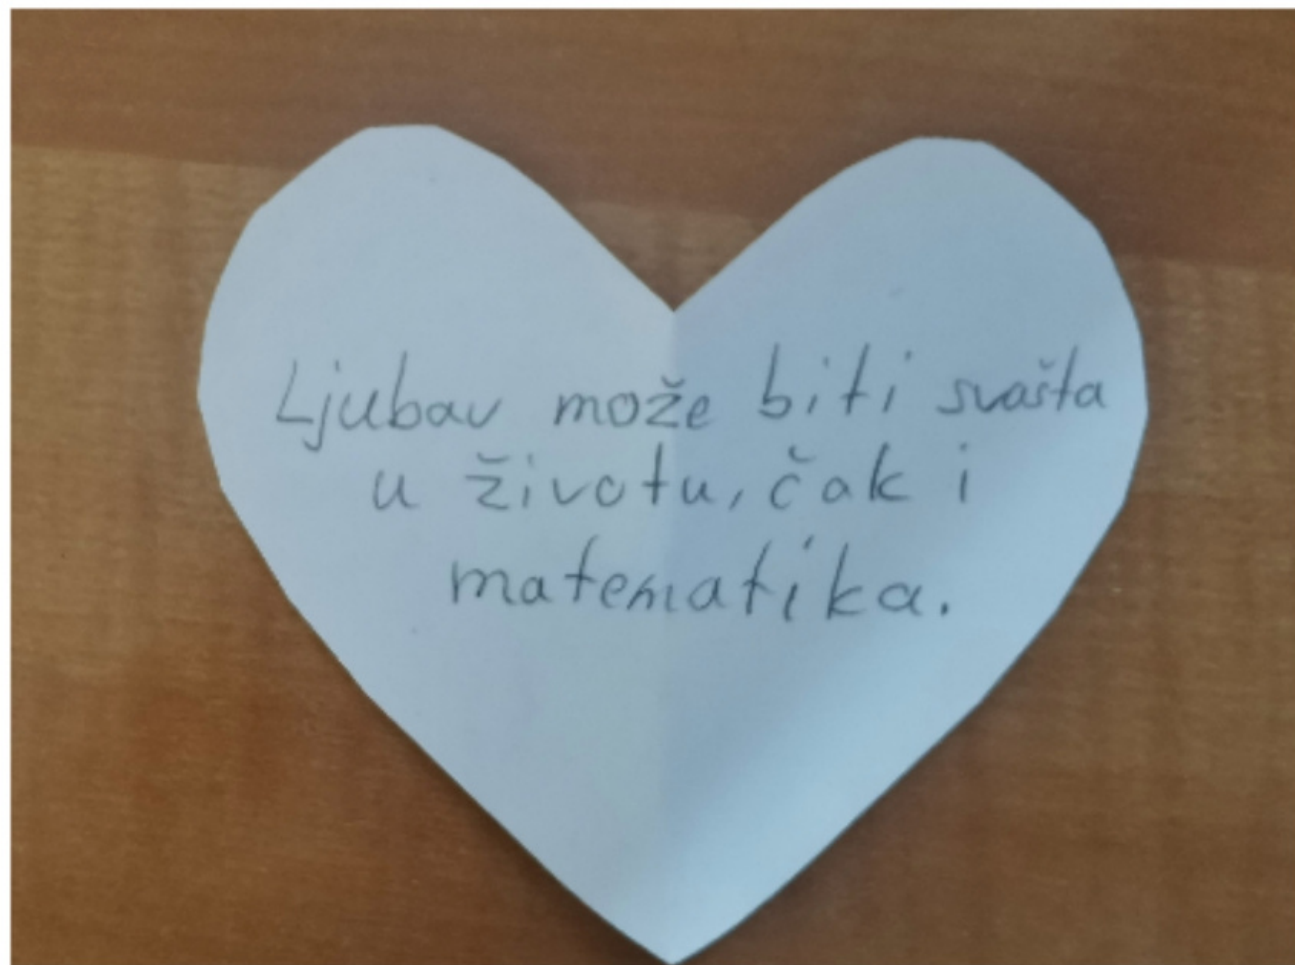 Ljubav može biti svašta
u životu, čak i
matematika.